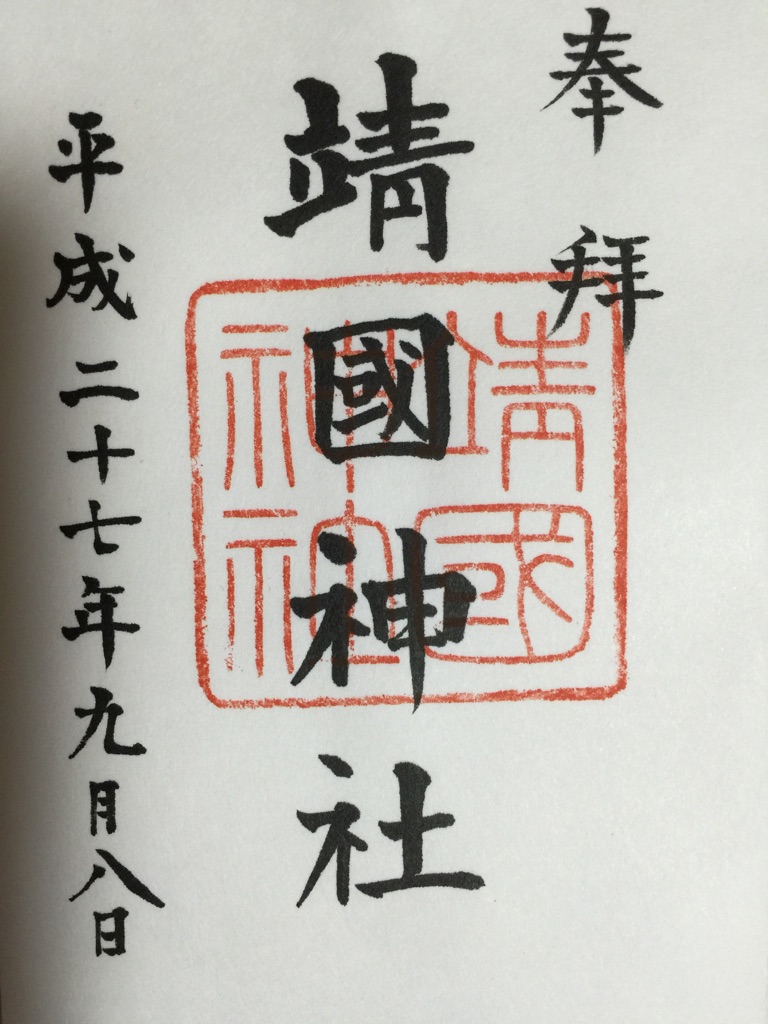 奉拜
靖國神社
靖國
神社
平成二十七年九月八日